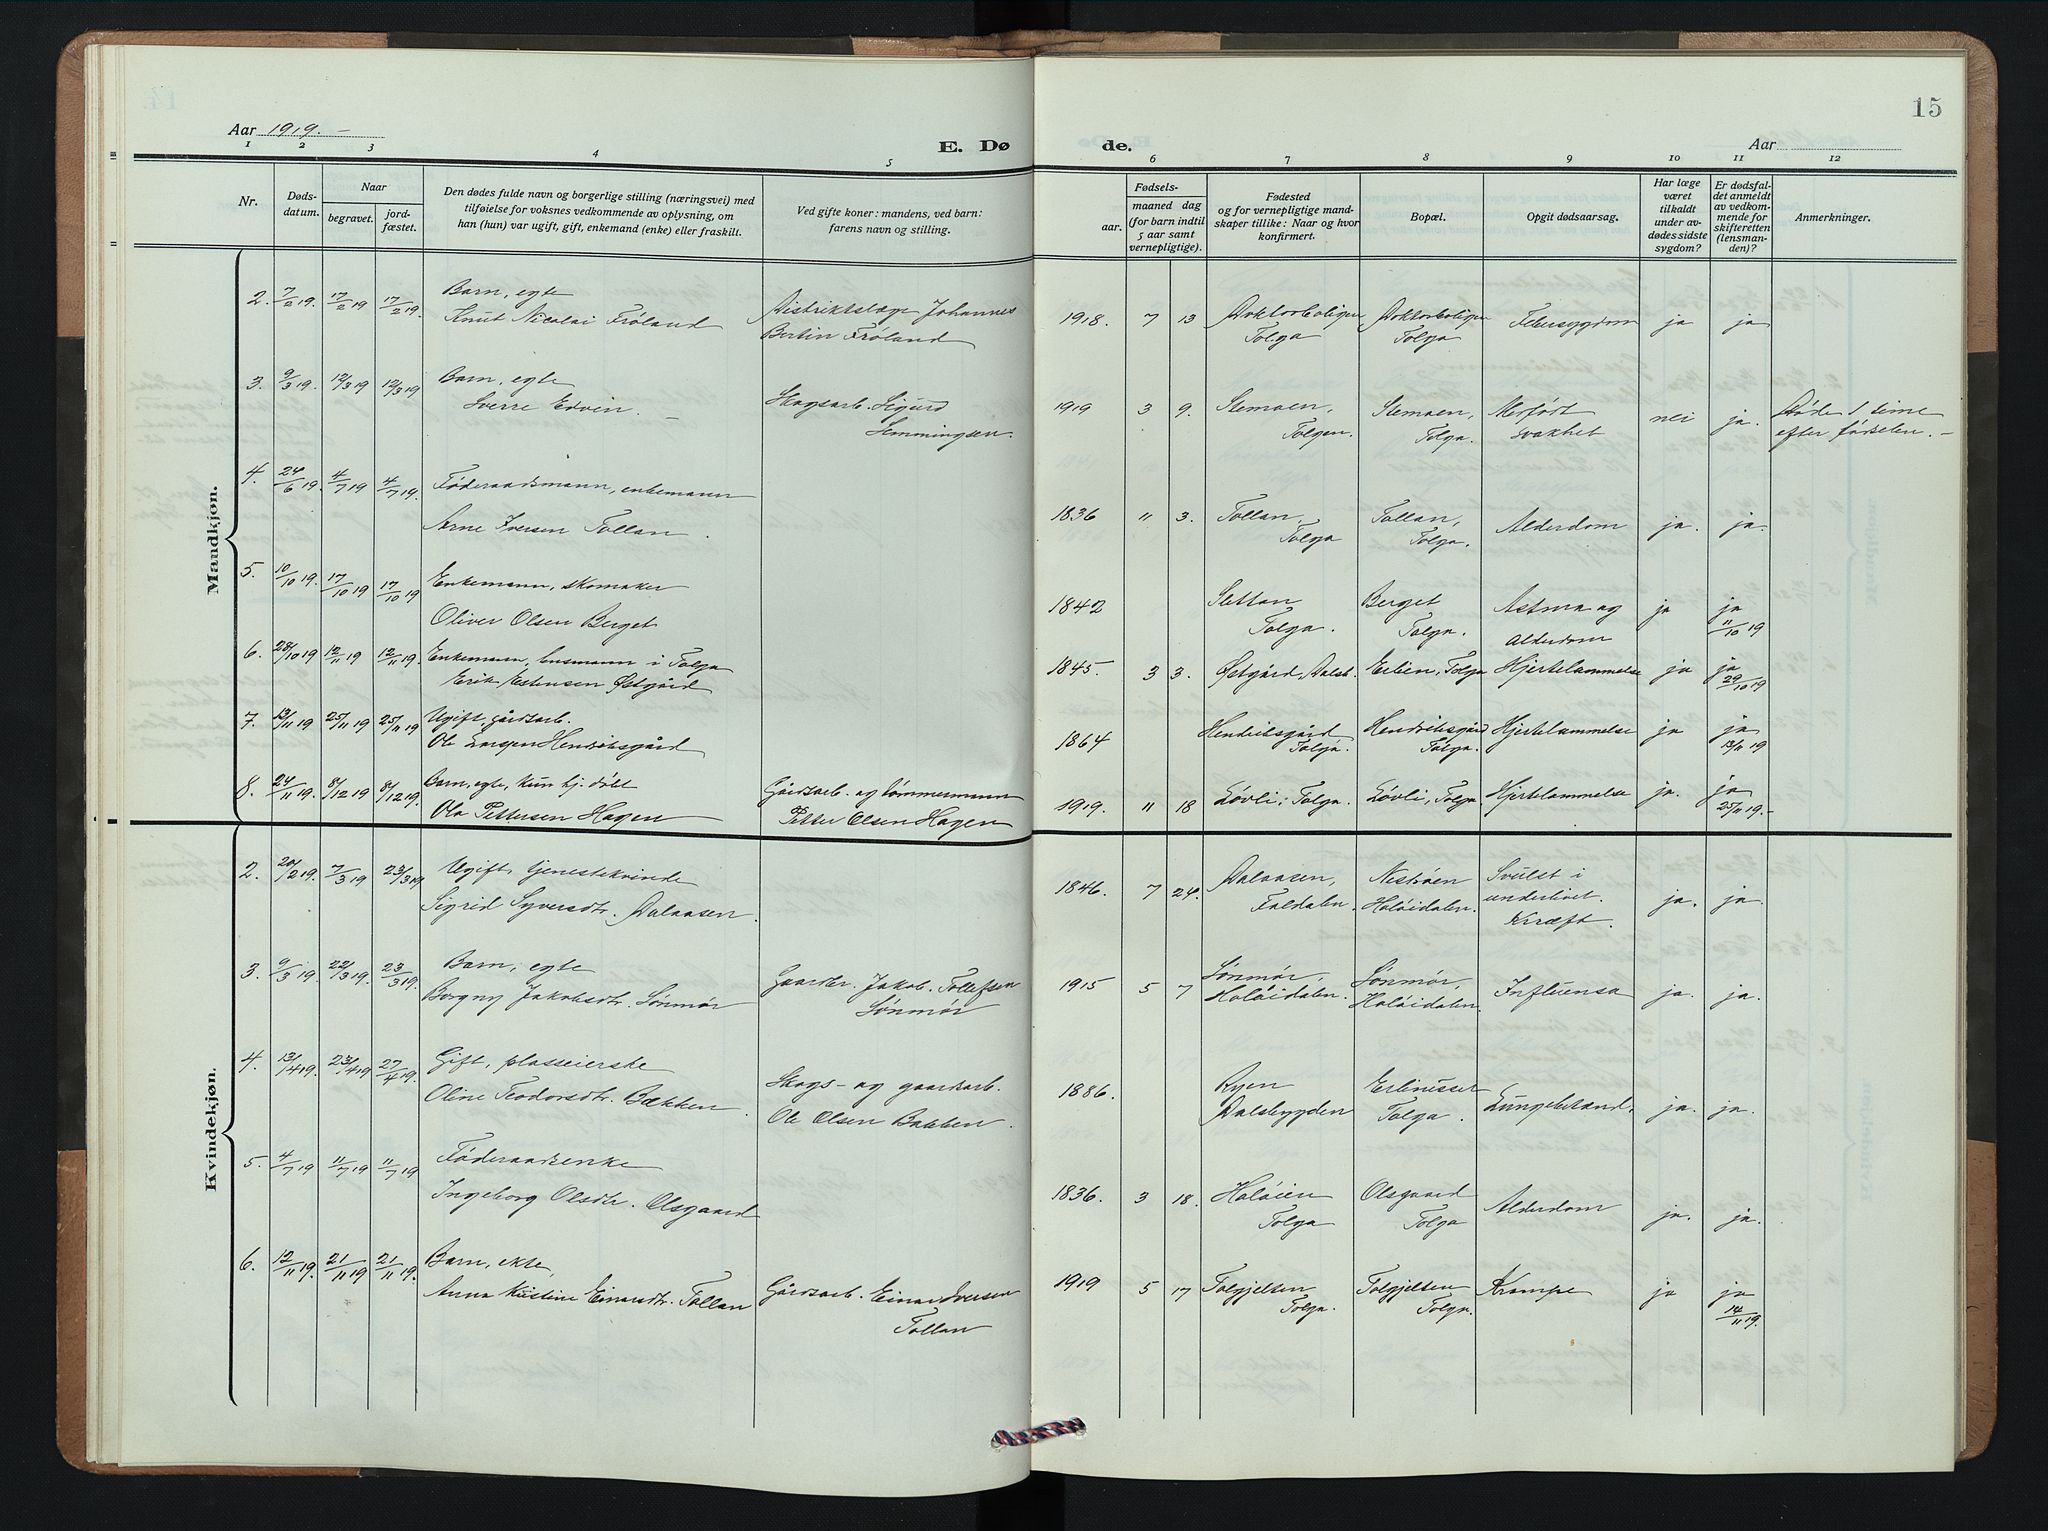 Aar 1919. –
E. Dø
de.
Aar
15
1 2 3 4 5 6 7 8 9 10 11 12
Nr.
Døds-
datum.
Naar
begravet.
jord-
fæstet.
Den dødes fulde navn og borgerlige stilling (næringsvei) med
tilføielse for voksnes vedkommende av oplysning, om
han (hun) var ugift, gift, enkemand (enke) eller fraskilt.
Ved gifte koner: mandens, ved barn:
farens navn og stilling.
Fødsels-
aar.
maaned dag
(for barn indtil
5 aar samt
vernepligtige).
Fødested
og for vernepligtige mand-
skaper tillike: Naar og hvor
konfirmert.
Bopæl.
Opgit dødsaarsag.
Har læge
været
tilkaldt
under av-
dødes sidste
sygdom?
Er dødsfal-
det anmeldt
av vedkom-
mende for
skifteretten
(lensman-
den)?
Anmerkninger.
Mandkjøn.
2. 7/2 19. 17/2 19 17/2 19. Barn, egte
Knut Nicolai Frøland
Distriktslæge Johannes
Bertin Frøland
1918. 7 13 Doktorboligen
Tolga
Doktorboligen
Tolga
Febersygdom ja ja
3. 9/3 19. 12/3 19 12/3 19 Barn, egte
Sverre Edvin. –
Skogsarb. Sigurd
Hemmingsen.
1919 3 9. Stemoen,
Tolgen.
Stemoen,
Tolga.
Medfødt
svakhet
nei ja. Døde 1 time
efter fødselen. –
4. 24/6 19. 4/7 19 4/7 19. Føderaadsmann, enkemann
Arne Iversen Tollan.
1836 11 3. Tollan,
Tolga
Tollan,
Tolga.
Alderdom ja. ja.
5. 10/10 19. 17/10 19 17/10 19 Enkemann, skomaker
Oliver Olsen Berget
1842 Slettan
Tolga.
Berget
Tolga.
Astma og
Alderdom
ja ja
11/10 19
6. 28/10 19 12/11 19 12/11 19. Enkemann, lensmann i Tolga
Erik Estensen Østgård
1845. 3 3. Østgård, Dalsb. Erlien, Tolga Hjertelammelse ja ja
29/10 19
7. 13/11 19 25/11 19 25/11 19 Ugift, gårdsarb.
Ole Larsen Hendriksgård
1864 Hendriksgård
Tolga.
Hendriksgård
Tolga.
Hjertelammelse ja ja
13/11 19
8. 24/11 19. 8/12 19 8/12 19. Barn, egte, kun hj. døbt
Ola Pettersen Hagen
Gårdsarb. og tømmermann
Petter Olsen Hagen
1919. 11 18 Løvli, Tolga. Løvli, Tolga Hjertelammelse ja. ja
25/11 19. –
Kvindekjøn.
2. 20/2 19. 7/3 19 23/3 19 Ugift, tjenestekvinde
Sigrid Syversdtr. Dalaasen.
1846. 7 24. Dalaasen,
Faldalen.
Nestrøen
Holøidalen.
Svulst i
underlivet.
Kræft.
ja. ja.
3. 9/3 19. 22/3 19. 23/3 19. Barn, egte
Borgny Jakobsdtr. Sønmør
Gaardbr. Jakob Tollefsen
Sønmør
1915 5 7 Sønmør,
Holøidalen.
Sønmør,
Holøidalen.
Influensa ja. ja.
4. 13/4 19. 23/4 19 27/4 19. Gift, plasseierske
Oline Teodorsdtr. Bækken.
Skogs- og gaardsarb.
Ole Olsen Bakken.
1886. Ryen
Dalsbygden
Tolga.
Lungebetænd. ja. ja.
5. 4/7 19 11/7 19 11/7 19 Føderaadsenke
Ingeborg Olsdtr. Olsgaard
1836. 3 18. Holøien
Tolga
Olsgaard
Tolga
Alderdom ja. ja.
6. 12/11 19. 21/11 19 21/11 19. Barn, ekte,
Anna Kristine Einarsdtr. Tollan
Gårdsarb. Einar Iversen
Tollan
1919 5 17 Tolgjelten
Tolga.
Tolgjelten
Tolga.
Krampe ja ja
14/11 19.